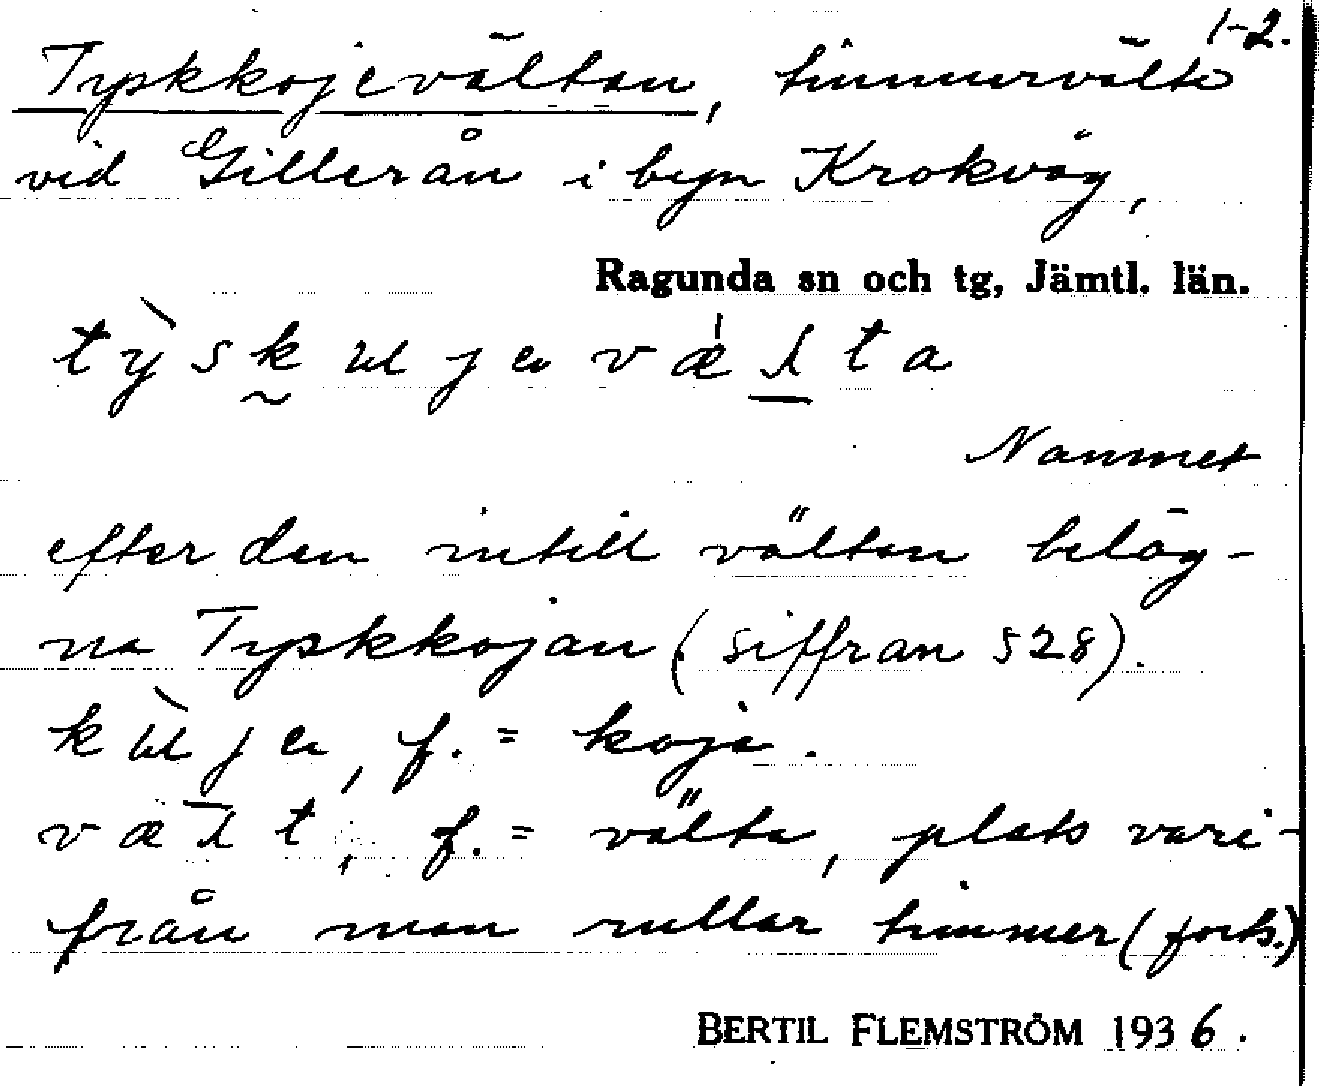 1-2.
Tyskkojevältan, timmervälta
vid Gillerån i byn Krokvåg,
Ragunda sn och tg, Jämtl. län.
Namnet
efter den intill vältan beläg-
na Tyskkojan (siffran 528).
f. = koja.
f. = välta, plats vari-
från man rullar timmer (forts.)
BERTIL FLEMSTRÖM 1936.